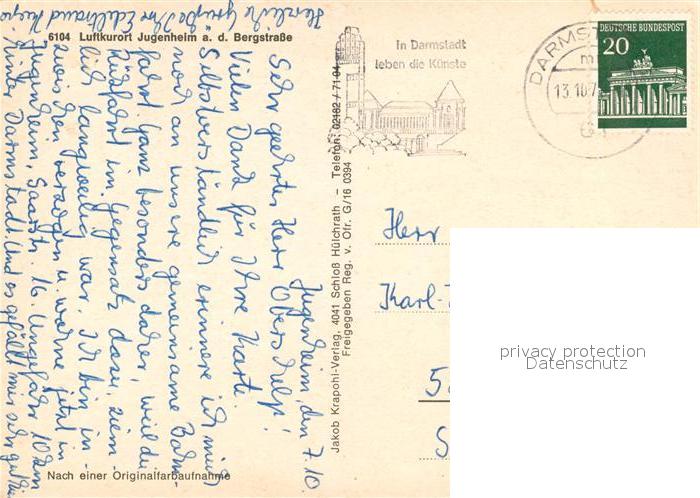 6104 Luftkurort Jugenheim a. d. Bergstraße
In Darmstadt
leben die Künste
DARMS
13.10.7
DEUTSCHE BUNDESPOST
20
Jugenheim, den 7.10.
Sehr geehrter Herr Oberschelp!
Vielen Dank für Ihre Karte.
Selbstverständlich erinnere ich mich
noch an unsere gemeinsame Bahn-
fahrt. Ganz besonders daher, weil die
Rückfahrt im Gegensatz dazu, ziem-
lich langweilig war. Ich bin in-
zwischen verzogen u. wohne jetzt in
Jugenheim, Saarstr. 16. Ungefähr 10 km
hinter Darmstadt. Und es gefällt mir sehr gut hier.
Herzliche Grüße Ihre Edeltraud
Jakob Krapohl-Verlag, 4041 Schloß Hülchrath – Telefon: 02182 / 71 04
Freigegeben Reg. v. Ofr. G/16 0394
Herr
Karl-
5
S
privacy protection
Datenschutz
Nach einer Originalfarbaufnahme